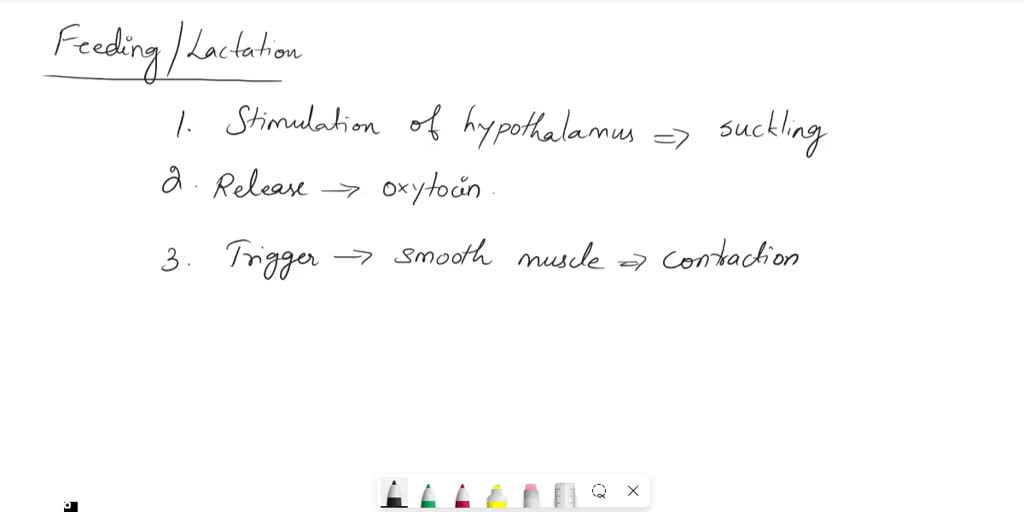 Feeding/Lactation
1. Stimulation of hypothalamus => suckling
2. Release → oxytocin.
3. Trigger → smooth muscle => contraction